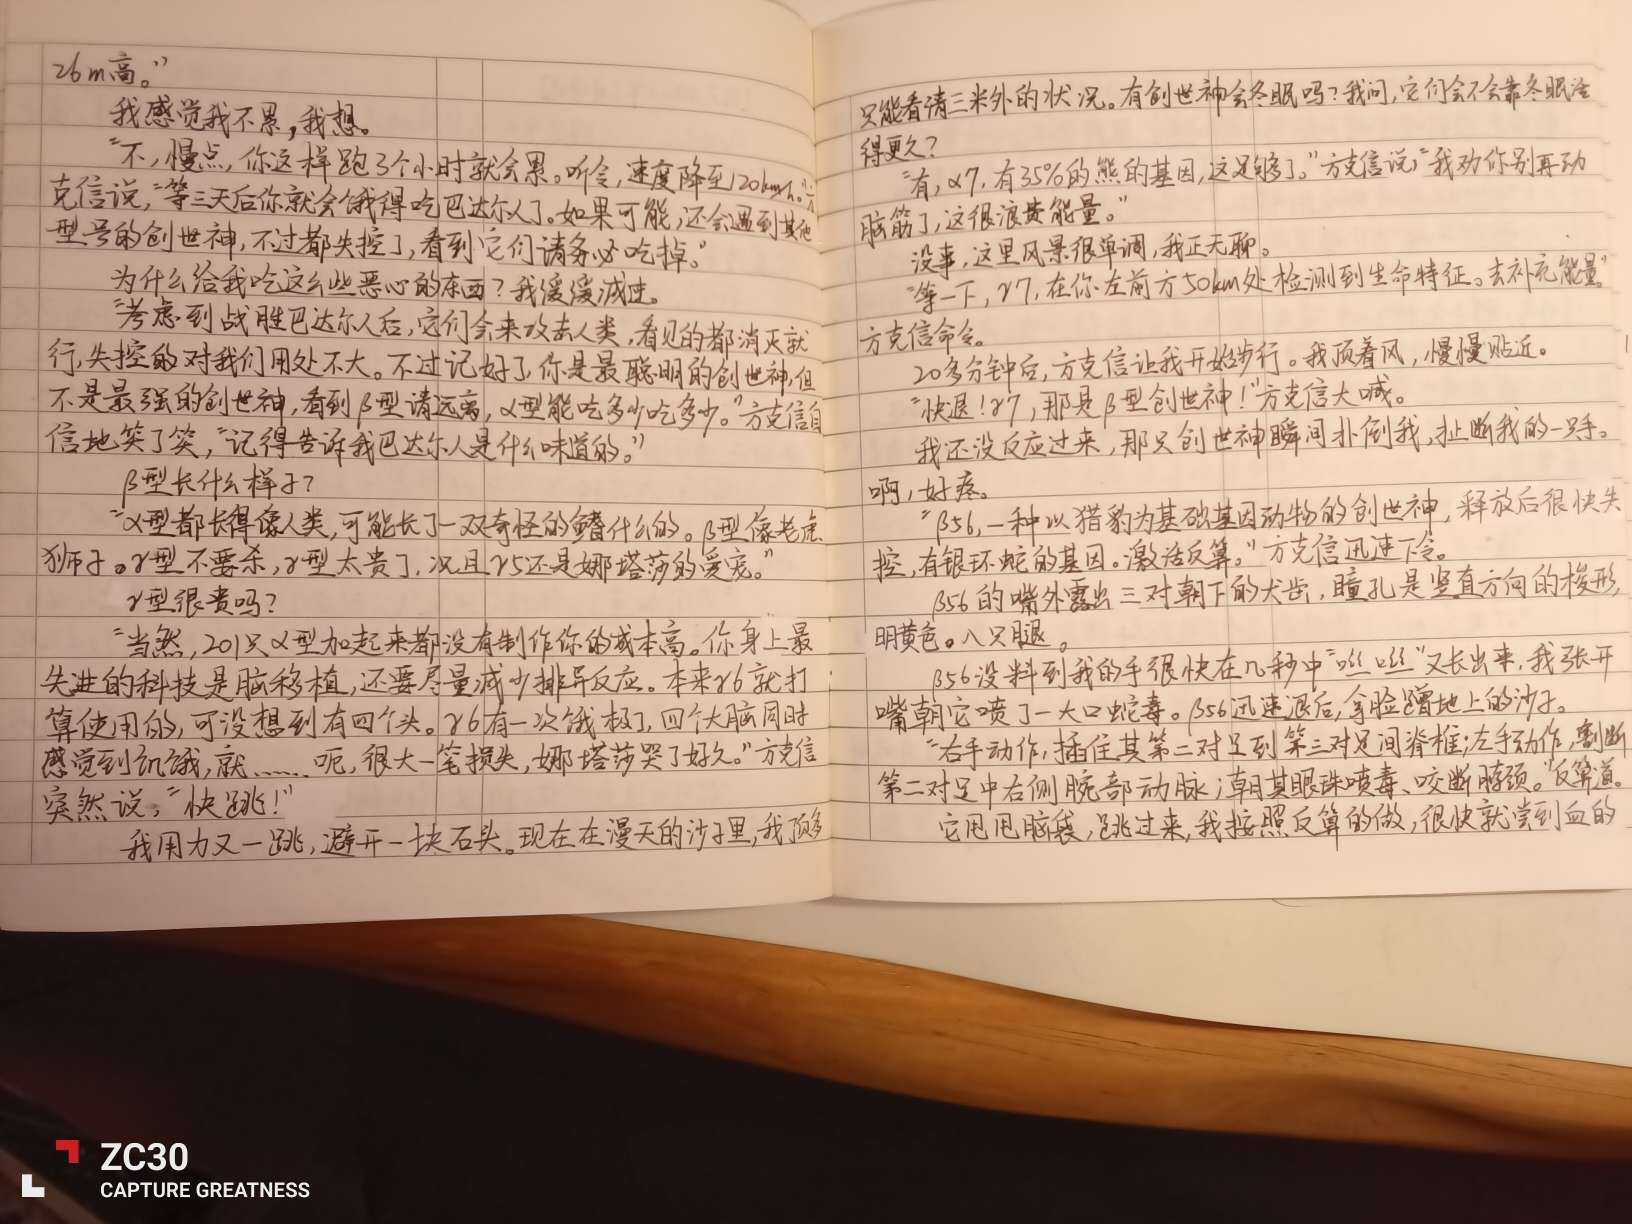 26m高。”
我感觉我不累，我想。
“不，慢点，你这样跑3个小时就会累。听令，速度降至120km/h。”方
克信说，“等三天后你就会饿得吃巴达尔人了。如果可能，还会遇到其他
型号的创世神，不过都失控了，看到它们请务必吃掉。”
为什么给我吃这么些恶心的东西？我缓缓减速。
“考虑到战胜巴达尔人后，它们会来攻击人类，看见的都消灭就
行，失控的对我们用处不大。不过记好了，你是最聪明的创世神，但
不是最强的创世神，看到β型请远离，α型能吃多少吃多少。”方克信自
信地笑了笑，“记得告诉我巴达尔人是什么味道的。”
β型长什么样子？
“α型都长得像人类，可能长了一双奇怪的鳍什么的。β型像老虎
狮子。γ型不要杀，γ型太贵了，况且γ5还是娜塔莎的爱宠。”
γ型很贵吗？
“当然，201只α型加起来都没有制作你的成本高。你身上最
先进的科技是脑移植，还要尽量减少排异反应。本来γ6就打
算使用的，可没想到有四个头。γ6有一次饿极了，四个大脑同时
感觉到饥饿，就……呃，很大一笔损失，娜塔莎哭了好久。”方克信
突然说，“快跳！”
我用力又一跳，避开一块石头。现在在漫天的沙子里，我顶多
只能看清三米外的状况。有创世神会冬眠吗？我问，它们会不会靠冬眠活
得更久？
“有，α7，有35%的熊的基因，这足够了。”方克信说，“我劝你别再动
脑筋了，这很浪费能量。”
没事，这里风景很单调，我正无聊。
“等一下，γ7，在你左前方50km处检测到生命特征。去补充能量。”
方克信命令。
20多分钟后，方克信让我开始步行。我顶着风，慢慢贴近。
“快退！γ7，那是β型创世神！”方克信大喊。
我还没反应过来，那只创世神瞬间扑倒我，扯断我的一只手。
啊，好疼。
“β56，一种以猎豹为基础基因动物的创世神，释放后很快失
控，有银环蛇的基因。激活反算。”方克信迅速下令。
β56的嘴外露出三对朝下的犬齿，瞳孔是竖直方向的梭形，
明黄色。八只腿。
β56没料到我的手很快在几秒中“咝咝”又长出来，我张开
嘴朝它喷了一大口蛇毒。β56迅速退后，拿脸蹭地上的沙子。
“右手动作，插住其第二对足到第三对足间脊椎；左手动作，割断
第二对足中右侧腕部动脉；朝其眼珠喷毒、咬断脖颈。”反算道。
它甩甩脑袋，跳过来，我按照反算的做，很快就尝到血的
ZC30
CAPTURE GREATNESS